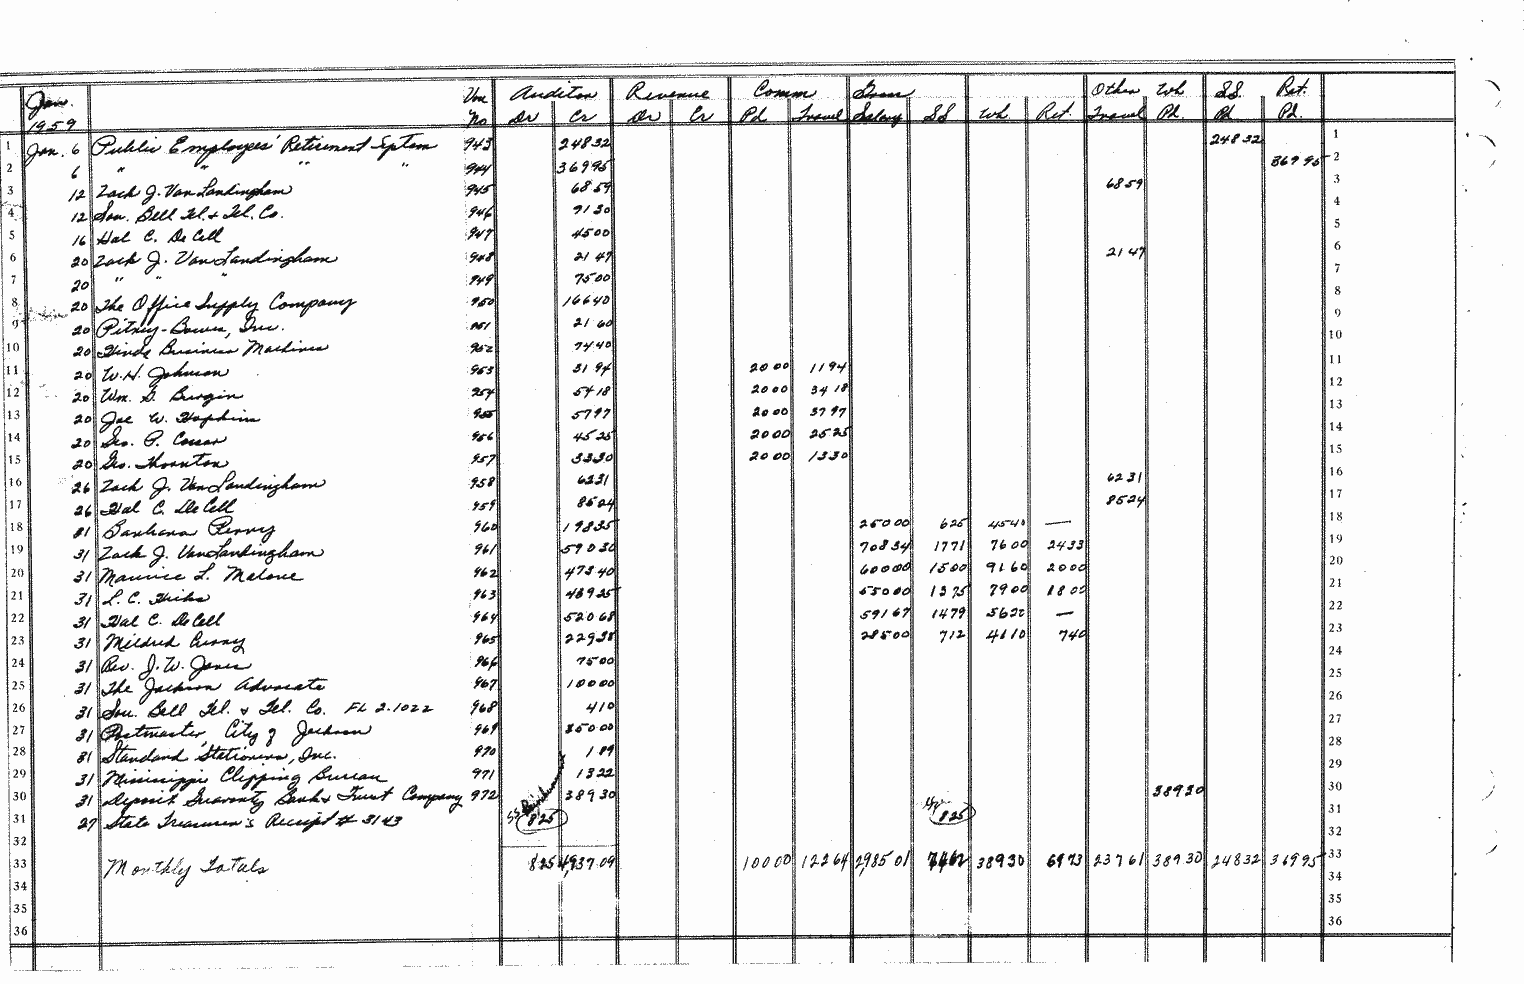 Jan. 1959 Vou No Auditor Dr Cr Revenue Dr Cr Comm Pd. Travel Gross Salary SS Wh. Ret. Other Travel Wh Pd. S.S. Pd. Ret. Pd.
1 Jan. 6 Public Employees' Retirement System 943 248 32 248 32 1
2 6 " " " " 944 369 95 369 95 2
3 12 Zack J. Van Landingham 945 68 59 68 59 3
4 12 Sou. Bell Tel. & Tel. Co. 946 91 30 4
5 16 Hal C. DeCell 947 45 00 5
6 20 Zack J. Van Landingham 948 21 47 21 47 6
7 20 " " " 949 75 00 7
8 20 The Office Supply Company 950 166 40 8
9 20 Pitney-Bowes, Inc. 951 21 60 9
10 20 Hinds Business Machines 952 74 40 10
11 20 W.H. Johnson 953 31 94 20 00 11 94 11
12 20 Wm. G. Burgin 954 54 18 20 00 34 18 12
13 20 Joe W. Hopkins 955 57 97 20 00 37 97 13
14 20 Geo. P. Cossar 956 45 25 20 00 25 25 14
15 20 Geo. Thornton 957 33 30 20 00 13 30 15
16 26 Zack J. Van Landingham 958 62 31 62 31 16
17 26 Hal C. DeCell 959 85 24 85 24 17
18 31 Barbara Perry 960 198 35 250 00 6 25 45 40 — 18
19 31 Zack J. Van Landingham 961 590 30 708 34 17 71 76 00 24 33 19
20 31 Maurice L. Malone 962 473 40 600 00 15 00 91 60 20 00 20
21 31 L. C. Hicks 963 439 25 550 00 13 75 79 00 18 00 21
22 31 Hal C. DeCell 964 520 68 591 67 14 79 56 20 — 22
23 31 Mildred Curry 965 229 38 285 00 7 12 41 10 7 40 23
24 31 Rev. J. W. Jones 966 75 00 24
25 31 The Jackson Advocate 967 100 00 25
26 31 Sou. Bell Tel. & Tel. Co. FL 2-1022 968 4 10 26
27 31 Postmaster, City of Jackson 969 350 00 27
28 31 Standard Stationers, Inc. 970 1 89 28
29 31 Mississippi Clipping Bureau 971 13 22 29
30 31 Deposit Guaranty Bank & Trust Company 972 389 30 389 30 30
31 27 State Treasurer's Receipt # 3143 SS 8 25 8 25 31
32 32
33 Monthly Totals 8 25 4,937.09 100 00 122 64 2,985 01 389 30 69 73 237 61 389 30 248 32 369 95 33
34 34
35 35
36 36